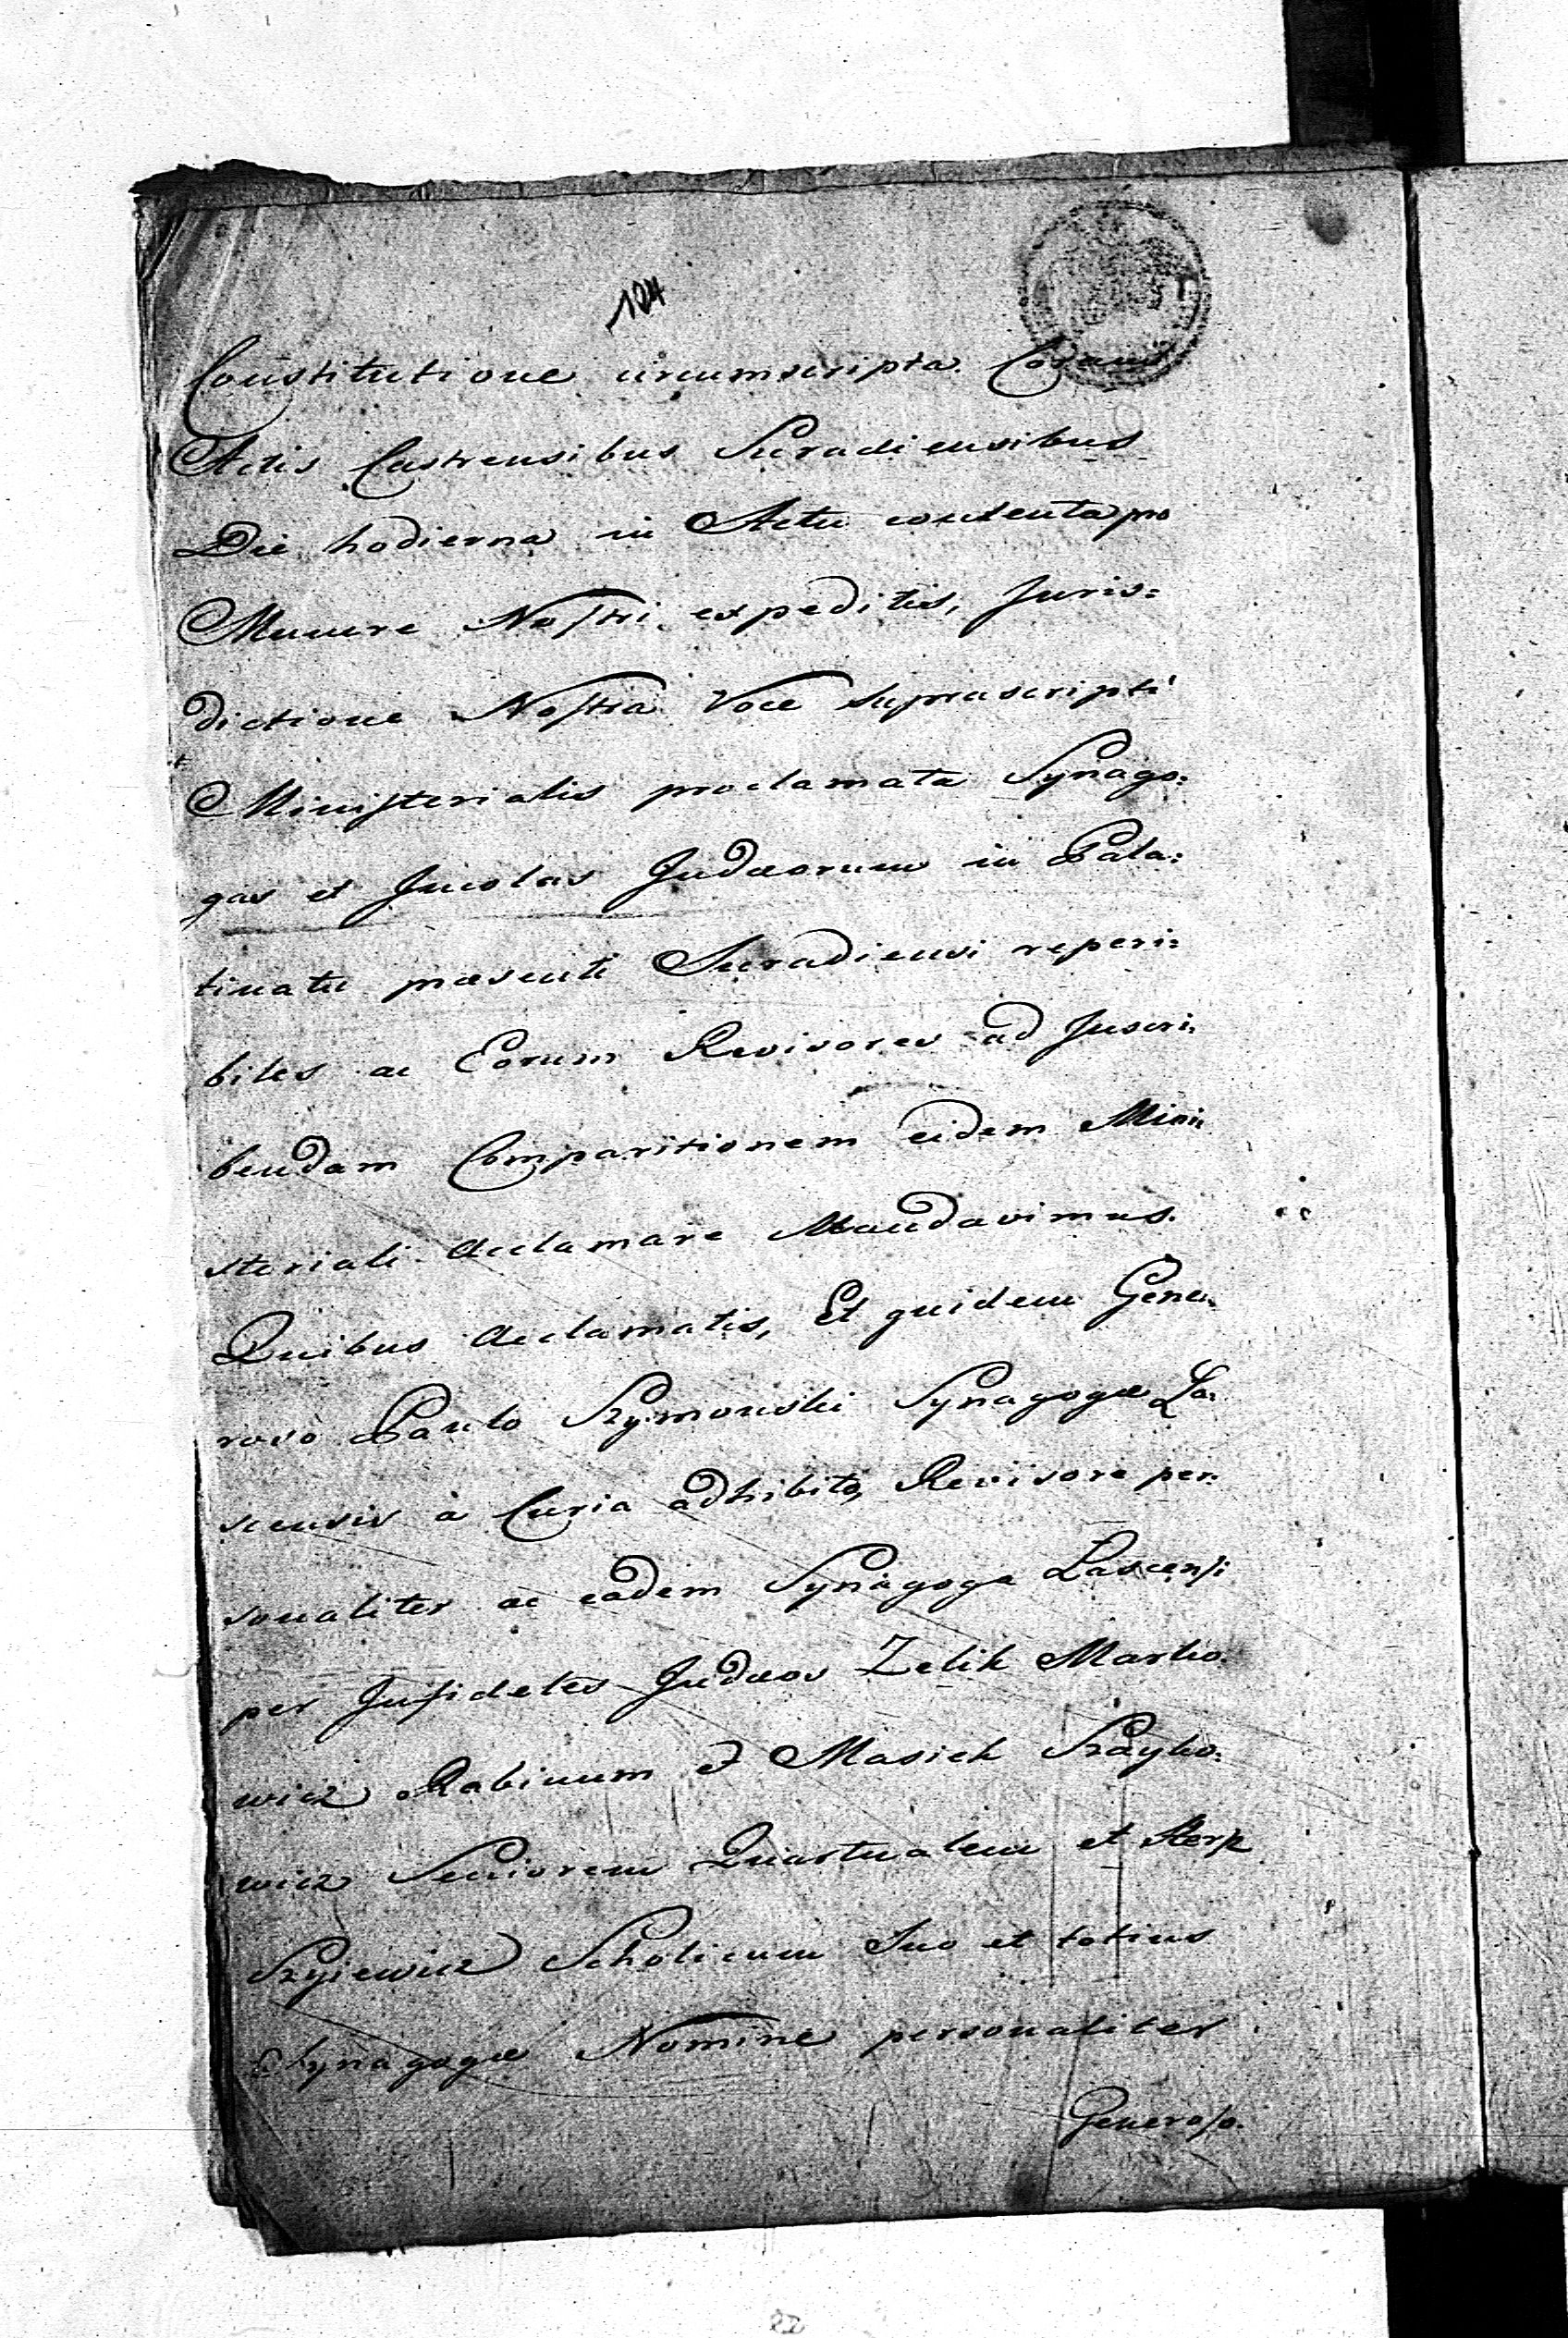 124
Constitutione circumscripta. Coram
Actis Castrensibus Siradiensibus
Die hodierna in Actu contenta pro
Munere Nostri expeditis, Juris:
dictione Nostra Voce suprascripti
Ministerialis proclamata Synago:
gas et Jncolas Judæorum in Pala:
tinatu præsenti Siradiensi reperi:
biles ac Eorum Revisores ad Jnscri:
bendam Comparitionem eidem Mini:
steriali Acclamare Mandavimus.
Quibus Acclamatis, Et quidem Gene:
roso Paulo Szymonski Synagogæ La:
scensis à Curia adhibito, Revisore per:
sonaliter ac eadem Synagoga Lascensi
per Jnfideles Judæos Zelik Marko:
wicz Rabinum et Masiek Szayko:
wicz Seniorem Quartualem et Herszk
Szyiewicz Scholicum Suo et totius
Synagogæ Nomine personaliter
Generoso.